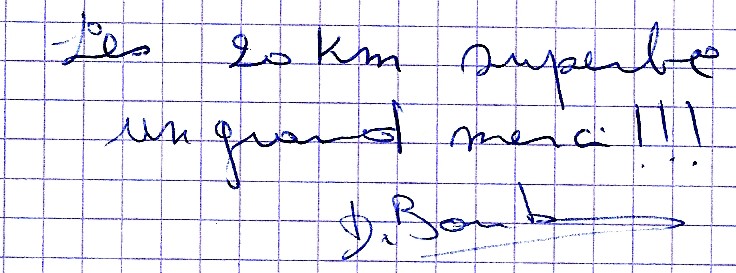 Les 20 km superbe
un grand merci !!!